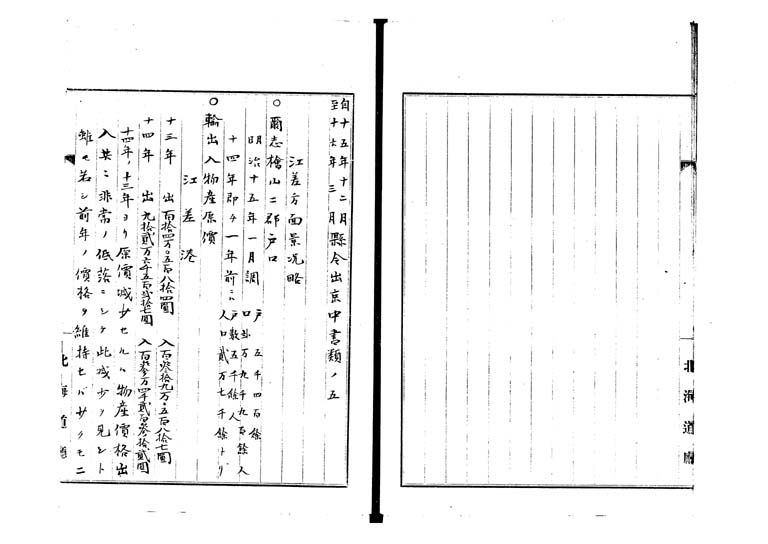 自十五年十二月
至十七年三月縣令出京中書類ノ五
江差方面景況略
○爾志檜山二郡戸口
明治十五年一月調 戸 五千四百餘
口 弐万九千九百餘人
十四年即チ一年前ニハ 戸数五千餘
人口貳万七千餘トリ
○輸出入物産原價
江差港
十三年 出 百拾四万〇五百八拾四圓 入 百弐拾九万〇五百八拾七圓
十四年 出 九拾貳万六千五百弐拾七圓 入 百参万四千貳百参拾貳圓
十四年ノ十三年ヨリ原價減少セルハ物産價格出
入共ニ非常ノ低落ニシテ此減少ヲ見ント
雖モ若シ前年ノ價格ヲ維持セバ少クモ二
北海道廳
北海道廳